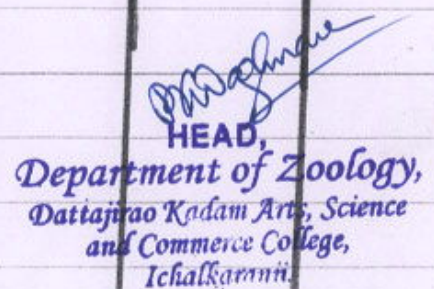 HEAD,
Department of Zoology,
Dattajirao Kadam Arts, Science
and Commerce College,
Ichalkaranji.